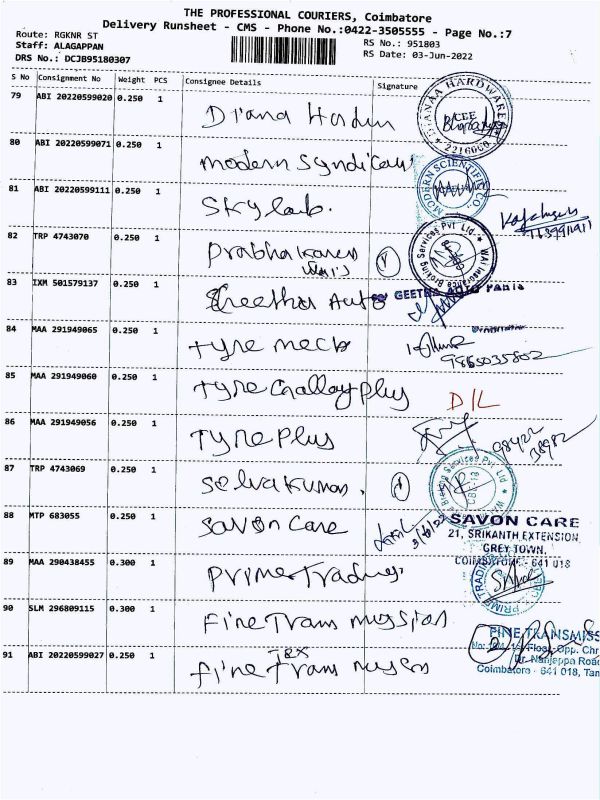 THE PROFESSIONAL COURIERS, Coimbatore
Delivery Runsheet - CMS - Phone No.:0422-3505555 - Page No.:7
Route: RGKNR ST
Staff: ALAGAPPAN
DRS No.: DCJB95180307
RS No.: 951803
RS Date: 03-Jun-2022
S No Consignment No Weight PCS Consignee Details Signature
79 ABI 20220599020 0.250 1 Diana Hardw
DIANAA HARDWARE
2216000
80 ABI 20220599071 0.250 1 modern Syndicate
MODERN SCIENTIFIC CO.
81 ABI 20220599111 0.250 1 Skylab.
82 TRP 4743070 0.250 1 Prabhakaren
Broking Services Pvt Ltd.
83 IXM 501579137 0.250 1 Geetha Auto
GEETHA AUTO
84 MAA 291949065 0.250 1 Tyre mech
9865035802
85 MAA 291949060 0.250 1 Tyre Gallay Plus
D/L
86 MAA 291949056 0.250 1 Tyre Plus
98422
38982
87 TRP 4743069 0.250 1 Selvakumar.
Broking Services Pvt Ltd
88 MTP 683055 0.250 1 Savon Care
SAVON CARE
21, SRIKANTH EXTENSION,
GREY TOWN,
COIMBATORE - 641 018
89 MAA 290438455 0.300 1 Prime Trading
PRIME TRADING
90 SLM 296809115 0.300 1 Fine Trans mission
FINE TRANSMISS
Floor, Opp. Chr
Dr. Nanjappa Road
Coimbatore - 641 018, Tam
91 ABI 20220599027 0.250 1 fine Trans missen
Tex